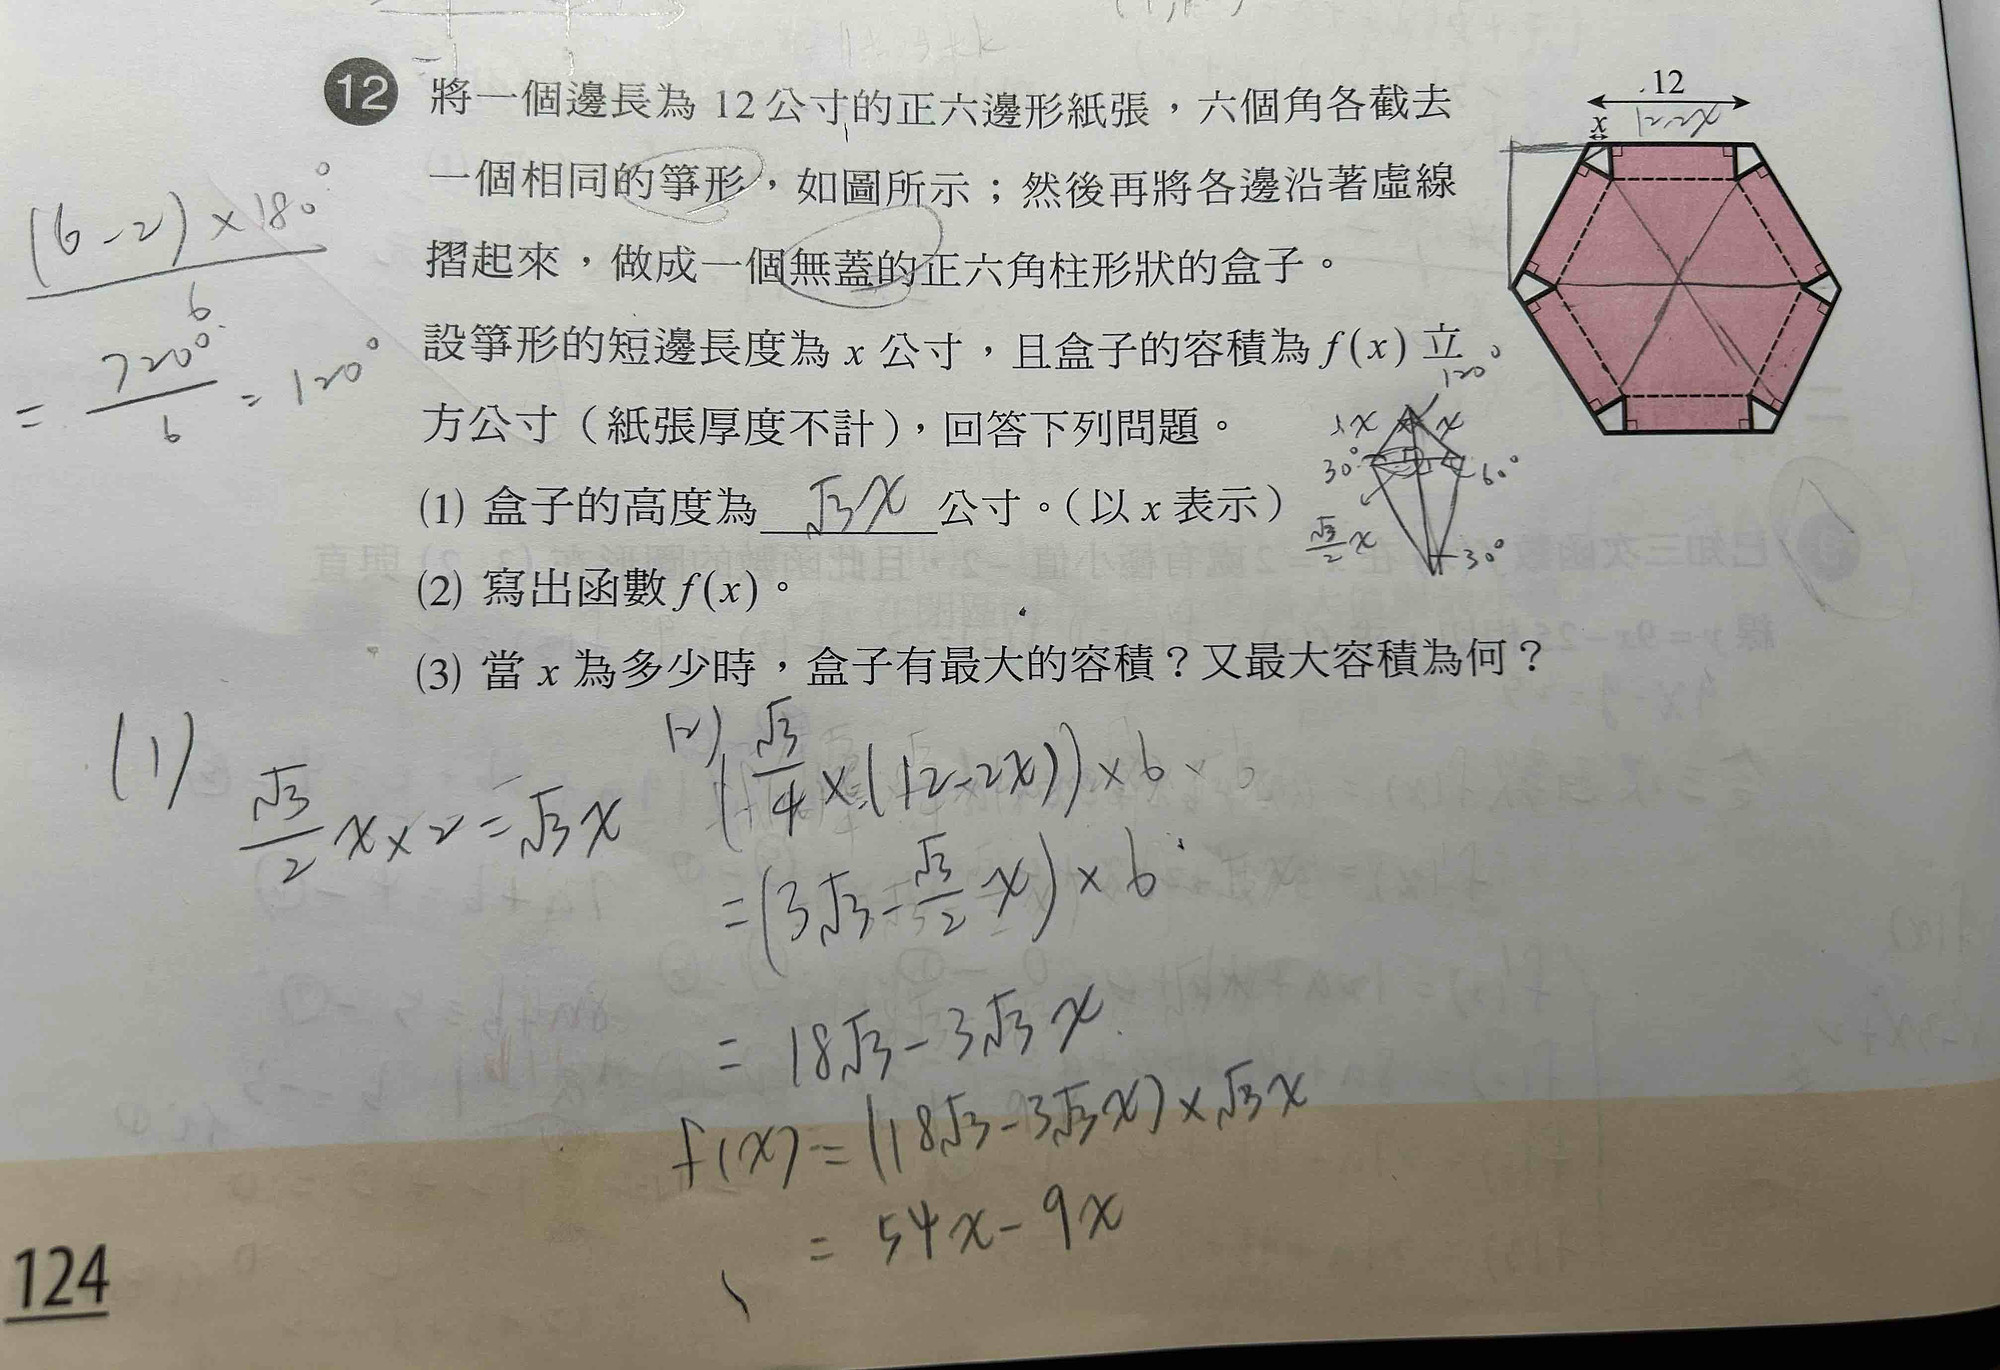 12 將一個邊長為 12 公寸的正六邊形紙張，六個角各截去
一個相同的箏形，如圖所示；然後再將各邊沿著虛線
摺起來，做成一個無蓋的正六角柱形狀的盒子。
設箏形的短邊長度為 x 公寸，且盒子的容積為 f(x) 立
方公寸（紙張厚度不計），回答下列問題。
(1) 盒子的高度為 √3x 公寸。（以 x 表示）
(2) 寫出函數 f(x)。
(3) 當 x 為多少時，盒子有最大的容積？又最大容積為何？
12
x 12-2x
(6-2)×180°
6
= 720°/6 = 120°
120°
x x
30° 60°
√3/2 x
30°
(1)
√3/2 x×2=√3x
(2)
(√3/4×(12-2x))×6
=(3√3-√3/2 x)×6
= 18√3-3√3x
f(x)=(18√3-3√3x)×√3x
= 54x-9x
124